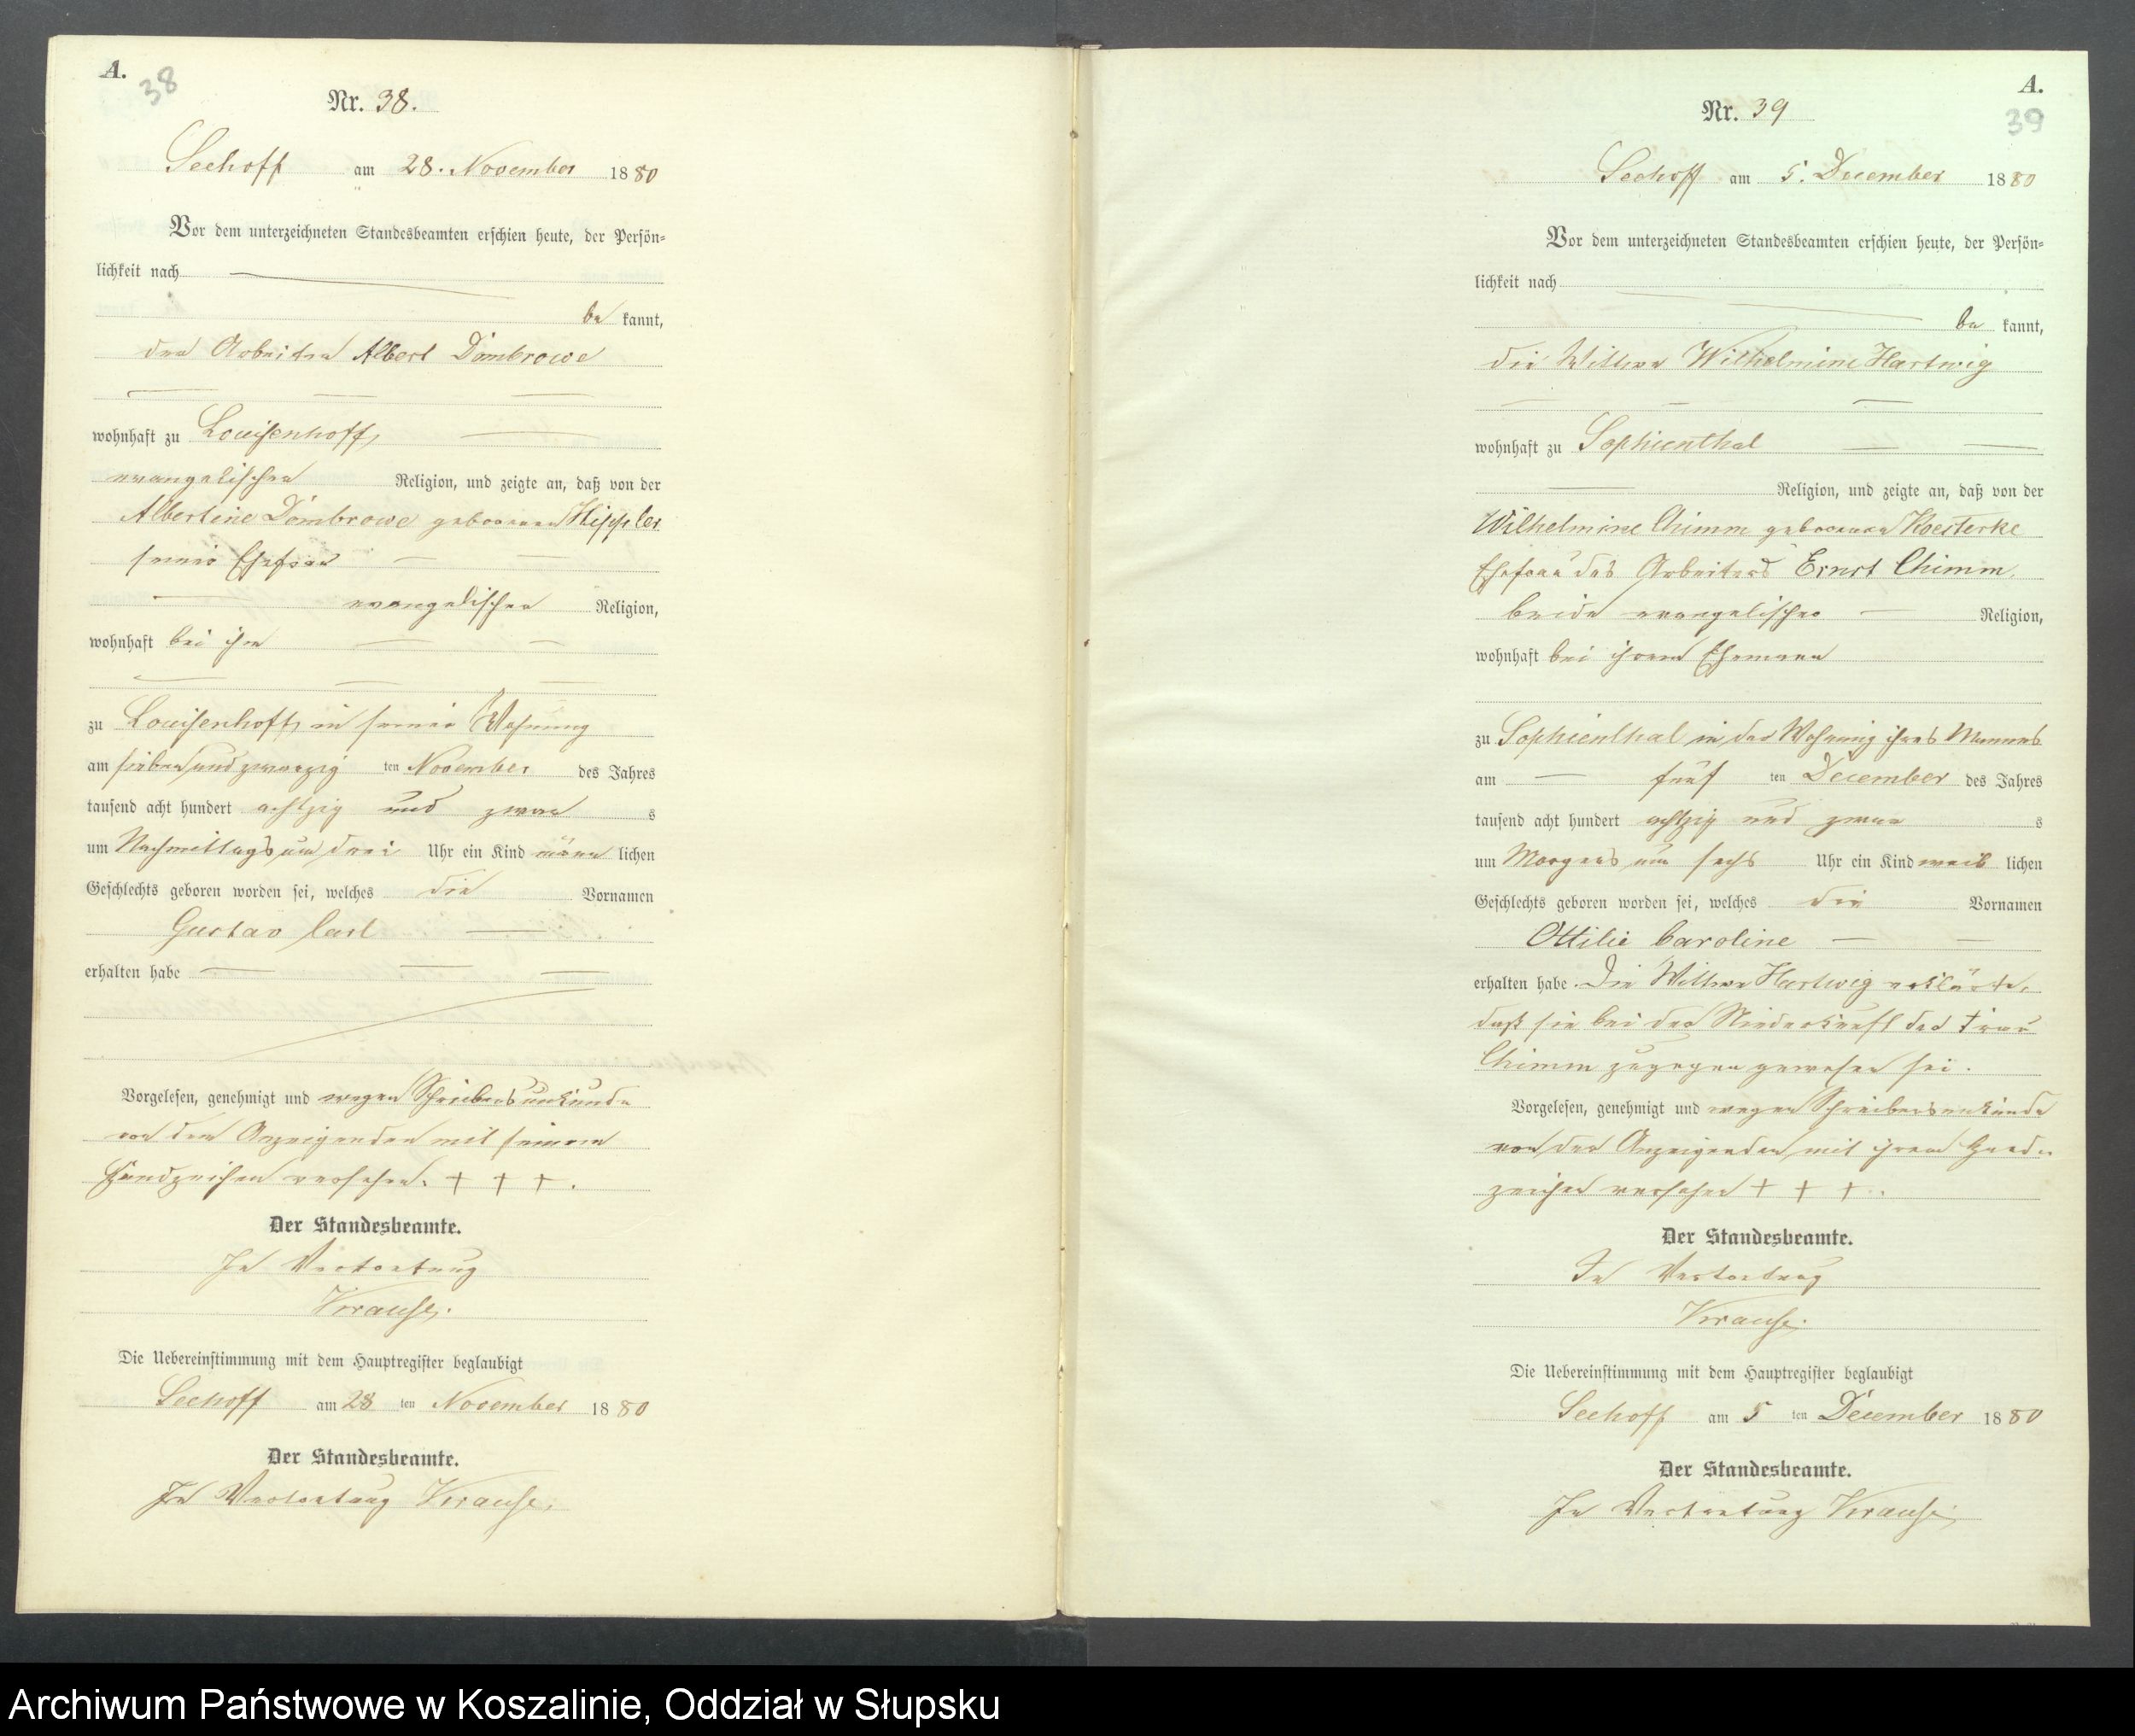 A.
38
Nr. 38.
Seehoff am 28. November 1880
Vor dem unterzeichneten Standesbeamten erschien heute, der Persön=
lichkeit nach
be kannt,
der Arbeiter Albert Dombrowe
wohnhaft zu Louisenhoff,
evangelischer Religion, und zeigte an, daß von der
Albertine Dombrowe geborenen Hippler
seiner Ehefrau
evangelischer Religion,
wohnhaft bei ihm
zu Louisenhoff, in seiner Wohnung
am sieben und zwanzig ten November des Jahres
tausend acht hundert achtzig und zwar s
um Nachmittags um drei Uhr ein Kind männ lichen
Geschlechts geboren worden sei, welches die Vornamen
Gustav Carl
erhalten habe
Vorgelesen, genehmigt und wegen Schreibensunkunde
von dem Anzeigenden mit seinem
Handzeichen versehen. + + +.
Der Standesbeamte.
In Vertretung
Krause.
Die Uebereinstimmung mit dem Hauptregister beglaubigt
Seehoff am 28 ten November 1880
Der Standesbeamte.
In Vertretung Krause.
A.
39
Nr. 39
Seehoff am 5. December 1880
Vor dem unterzeichneten Standesbeamten erschien heute, der Persön=
lichkeit nach
be kannt,
die Wittwe Wilhelmine Hartwig
wohnhaft zu Sophienthal
Religion, und zeigte an, daß von der
Wilhelmine Chimm geborenen Koesterke
Ehefrau des Arbeiters Ernst Chimm,
beide evangelischer Religion,
wohnhaft bei ihrem Ehemann
zu Sophienthal in der Wohnung ihres Mannes
am fünf ten December des Jahres
tausend acht hundert achtzig und zwar s
um Morgens um sechs Uhr ein Kind weib lichen
Geschlechts geboren worden sei, welches die Vornamen
Ottilie Caroline
erhalten habe. Die Wittwe Hartwig erklärte,
daß sie bei der Niederkunft der Frau
Chimm zugegen gewesen sei.
Vorgelesen, genehmigt und wegen Schreibensunkunde
von der Anzeigenden mit ihrem Hand=
zeichen versehen + + +.
Der Standesbeamte.
In Vertretung
Krause.
Die Uebereinstimmung mit dem Hauptregister beglaubigt
Seehoff am 5 ten December 1880
Der Standesbeamte.
In Vertretung Krause.
Archiwum Państwowe w Koszalinie, Oddział w Słupsku